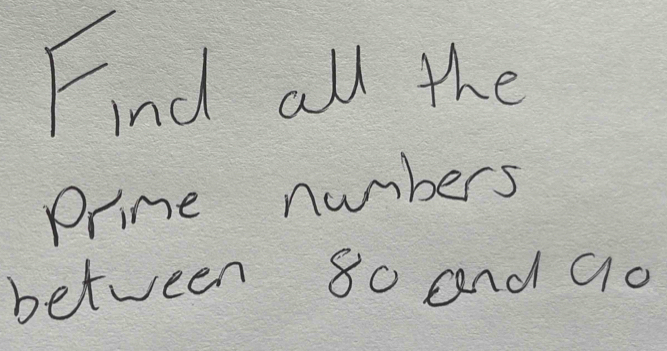 Find all the
prime numbers
between 80 and 90